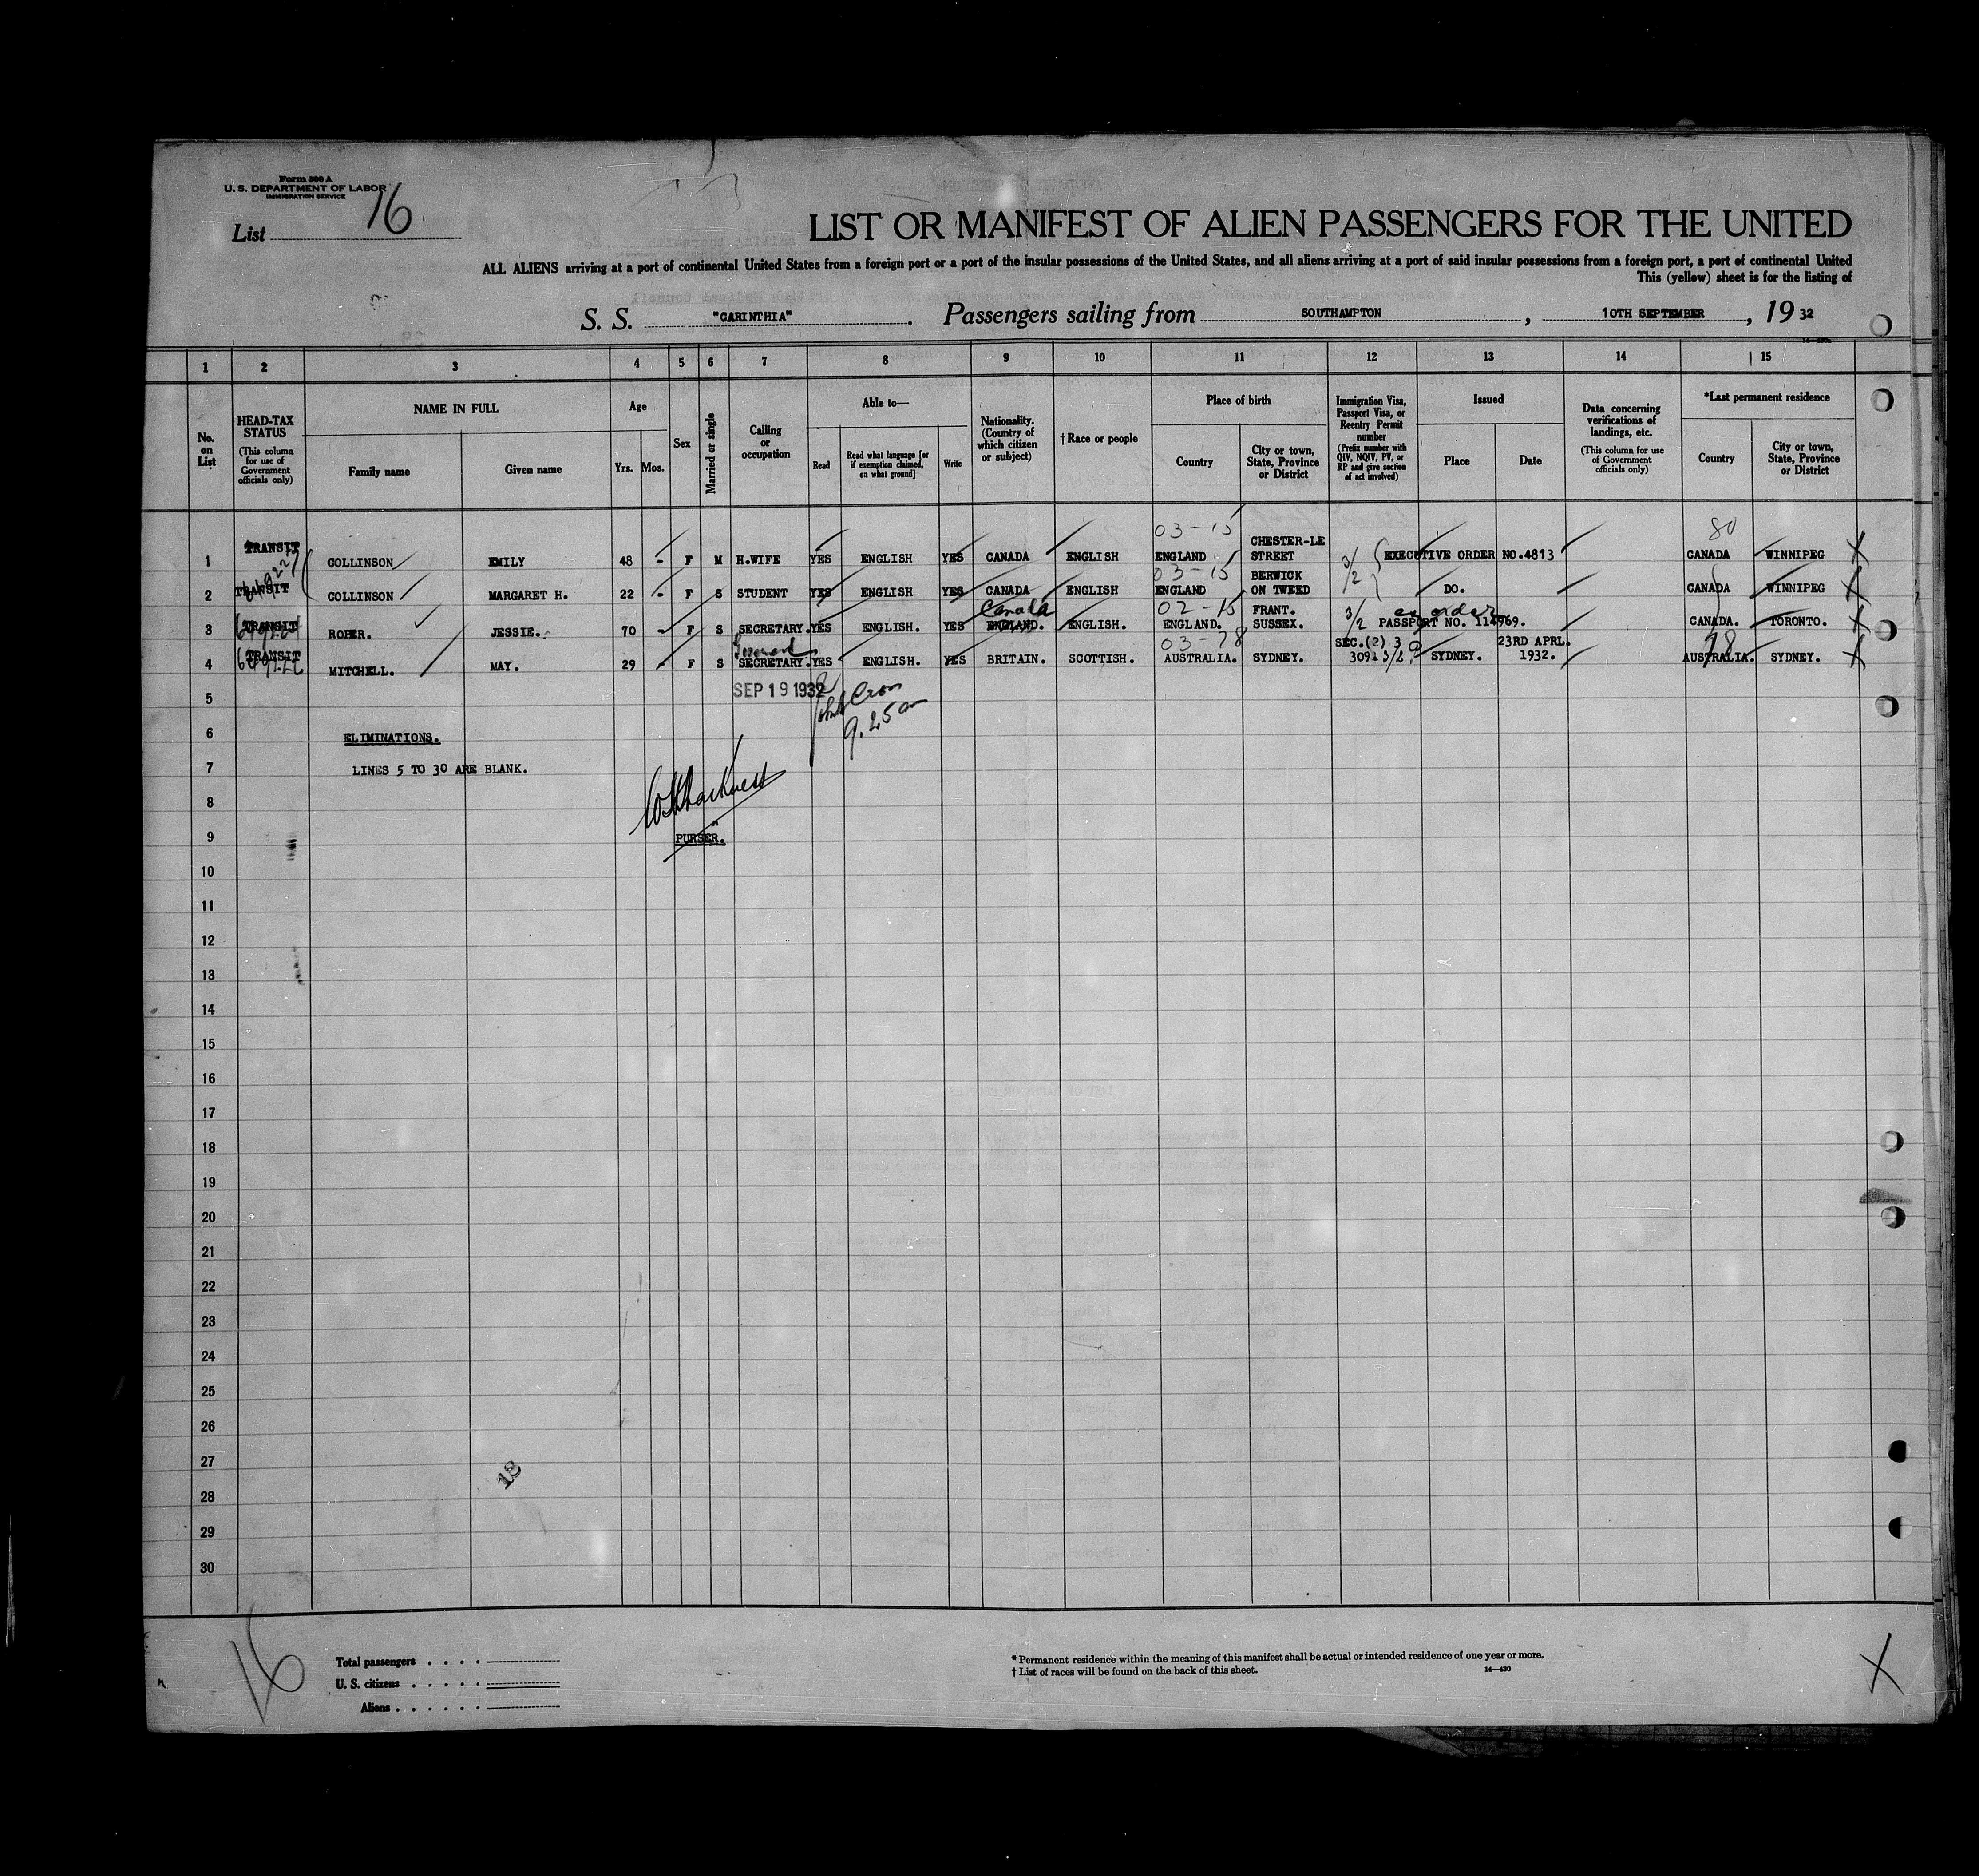 Form 500 A
U. S. DEPARTMENT OF LABOR
IMMIGRATION SERVICE
List 16
LIST OR MANIFEST OF ALIEN PASSENGERS FOR THE UNITED
ALL ALIENS arriving at a port of continental United States from a foreign port or a port of the insular possessions of the United States, and all aliens arriving at a port of said insular possessions from a foreign port, a port of continental United
This (yellow) sheet is for the listing of
S. S. "CARINTHIA". Passengers sailing from SOUTHAMPTON, 10TH SEPTEMBER, 19 32
1 2 3 4 5 6 7 8 9 10 11 12 13 14 15
No. on List
HEAD-TAX STATUS (This column for use of Government officials only)
NAME IN FULL
Family name Given name
Age
Yrs. Mos.
Sex
Married or single
Calling or occupation
Able to—
Read Read what language [or if exemption claimed, on what ground] Write
Nationality. (Country of which citizen or subject)
†Race or people
Place of birth
Country City or town, State, Province or District
Immigration Visa, Passport Visa, or Reentry Permit number (Prefix number with QIV, NQIV, PV, or RP and give section of act involved)
Issued
Place Date
Data concerning verifications of landings, etc. (This column for use of Government officials only)
*Last permanent residence
Country City or town, State, Province or District
03-15 80
1 TRANSIT COLLINSON EMILY 48 - F M H.WIFE YES ENGLISH YES CANADA ENGLISH ENGLAND CHESTER-LE STREET 3/2 EXECUTIVE ORDER NO.4813 CANADA WINNIPEG
03-15
2 TRANSIT COLLINSON MARGARET H. 22 - F S STUDENT YES ENGLISH YES CANADA ENGLISH ENGLAND BERWICK ON TWEED DO. CANADA WINNIPEG
Canada 02-15 ex order
3 TRANSIT ROPER. JESSIE. 70 - F S SECRETARY. YES ENGLISH. YES ENGLAND. ENGLISH. ENGLAND. FRANT. SUSSEX. 3/2 PASSPORT NO. 114969. CANADA. TORONTO.
03-78 78
4 TRANSIT MITCHELL. MAY. 29 - F S SECRETARY. YES ENGLISH. YES BRITAIN. SCOTTISH. AUSTRALIA. SYDNEY. SEC.(2) 3 3091 3/2 SYDNEY. 23RD APRL. 1932. AUSTRALIA. SYDNEY.
5 SEP 19 1932
9.25 am
6 ELIMINATIONS.
7 LINES 5 TO 30 ARE BLANK.
8
9 PURSER.
10
11
12
13
14
15
16
17
18
19
20
21
22
23
24
25
26
27 13
28
29
30
16
Total passengers
U. S. citizens
Aliens
* Permanent residence within the meaning of this manifest shall be actual or intended residence of one year or more.
† List of races will be found on the back of this sheet. 14—430
X